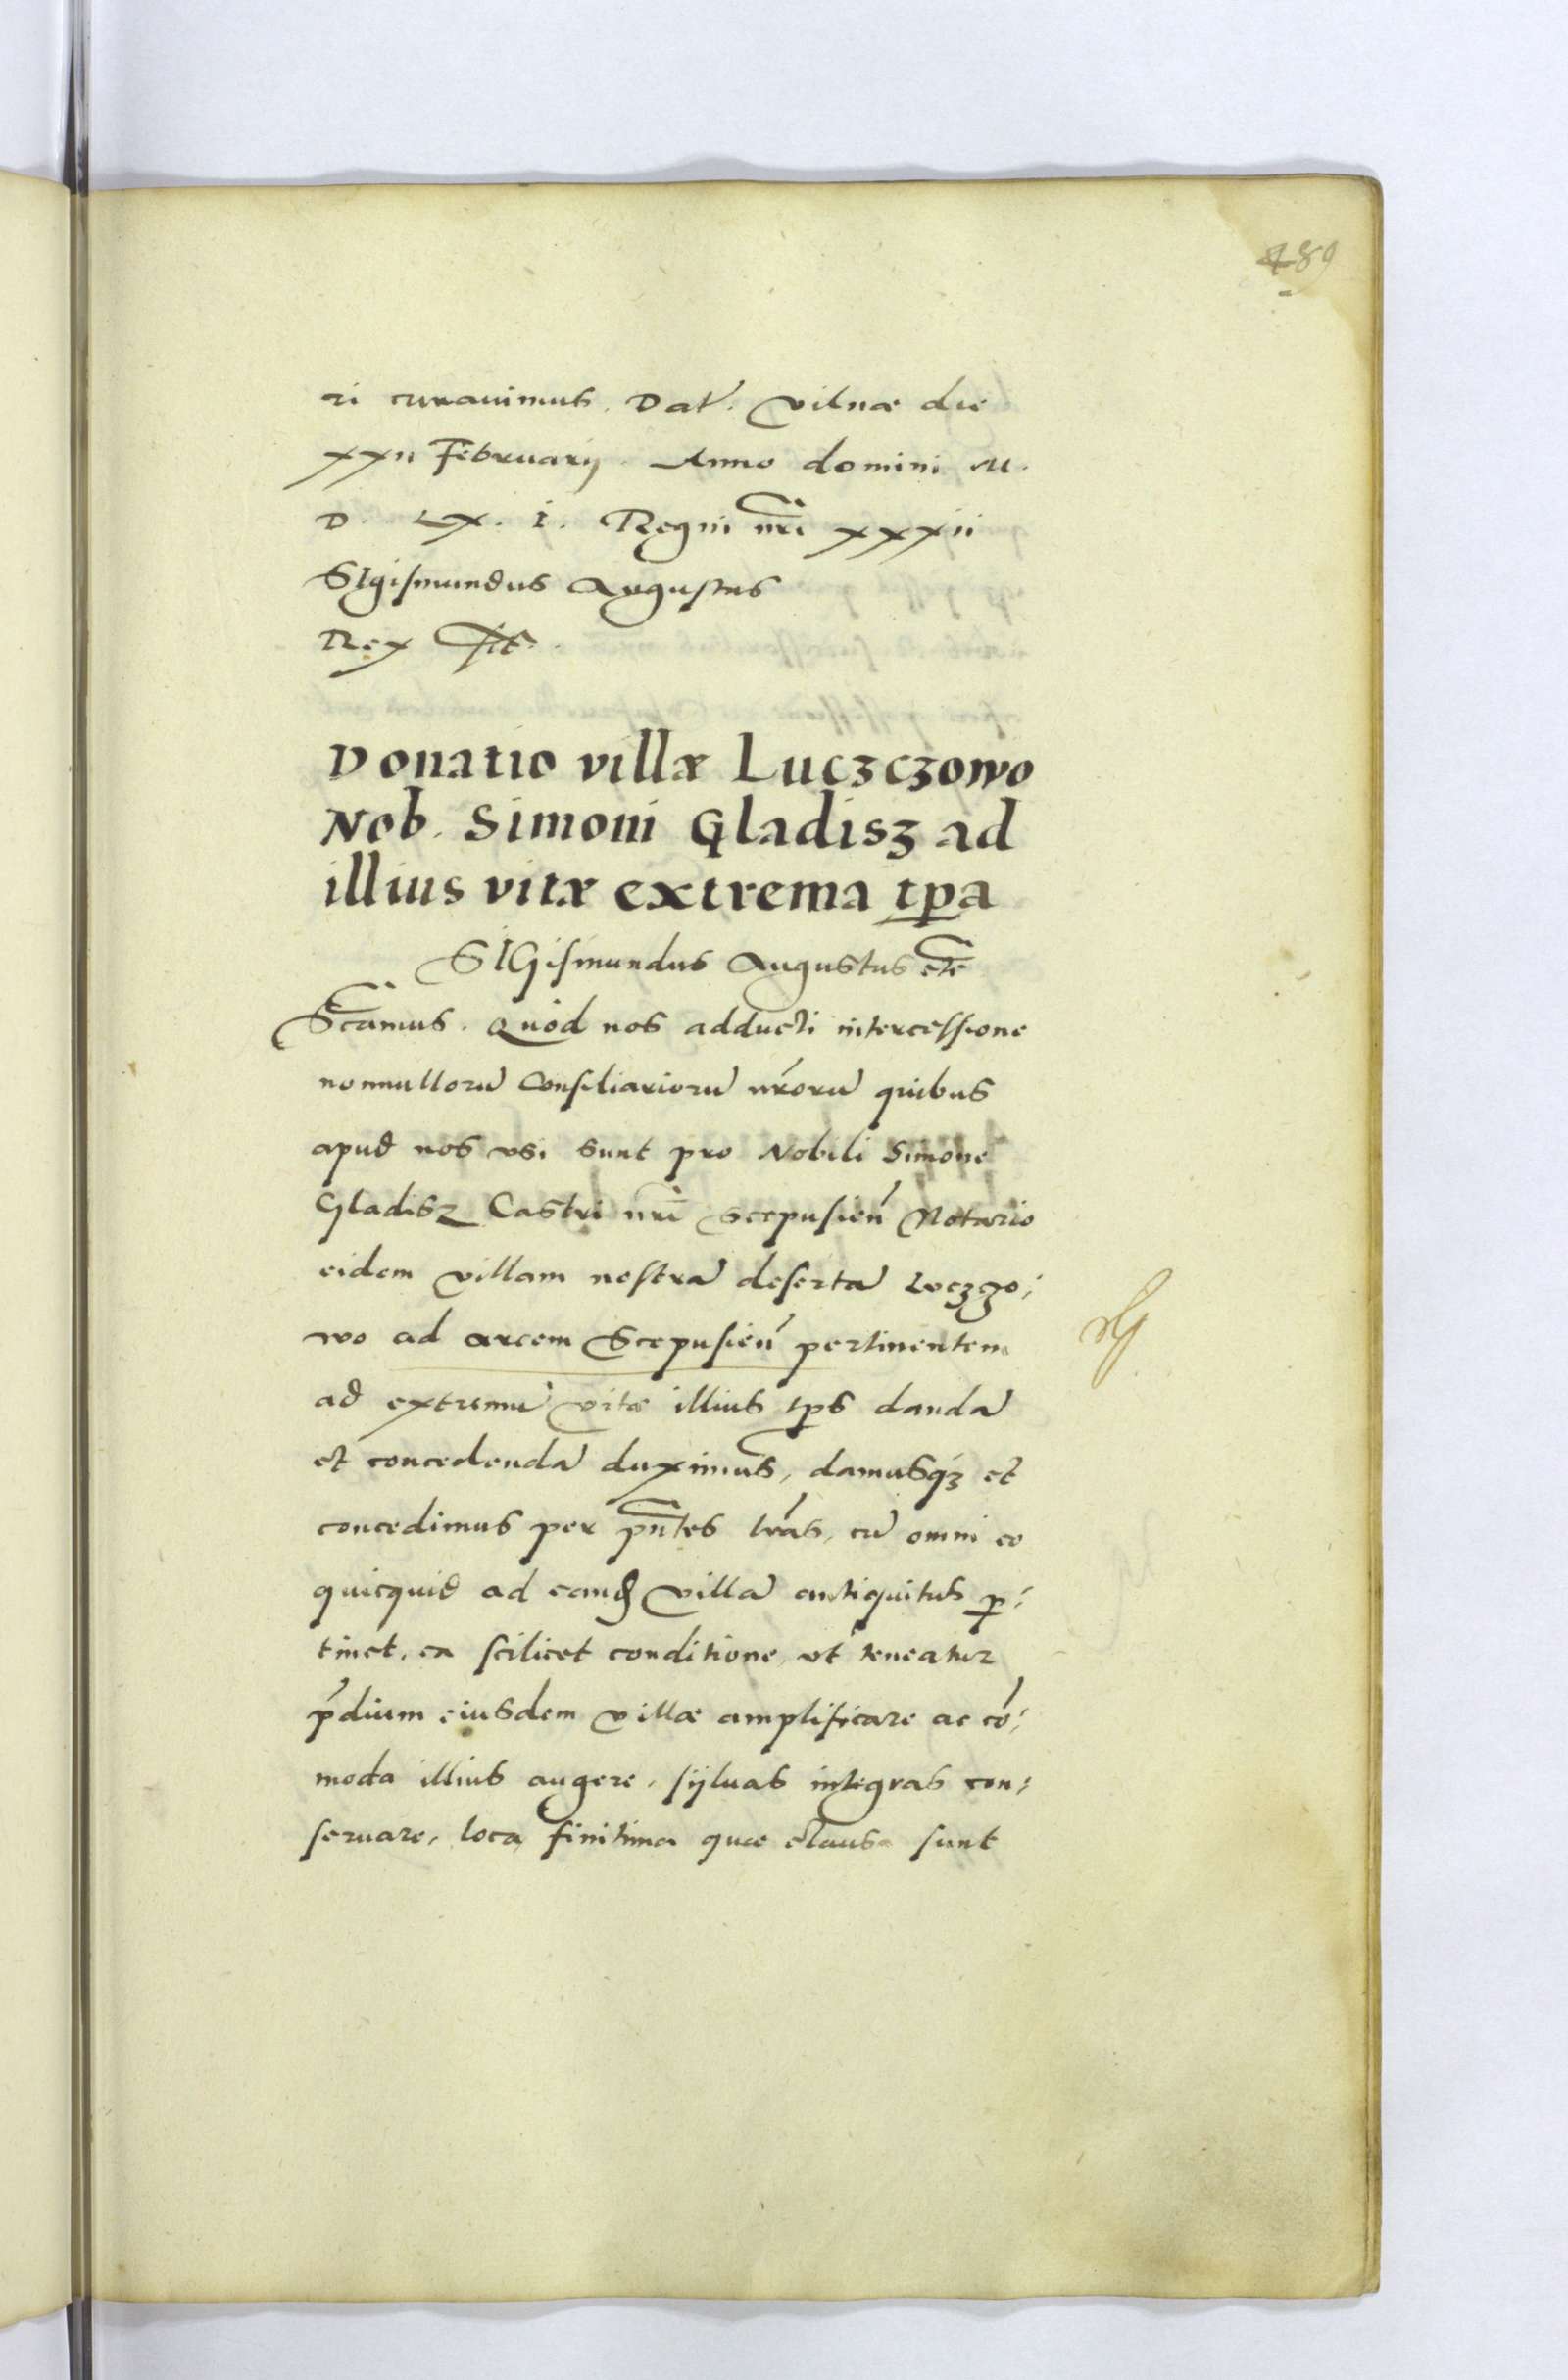 489
ri curauimus. Dat. Vilnæ die
XXII Februarij. Anno domini M.
D. LX. I. Regni nri XXXII
SIgismundus Augustus
Rex sst.
Donatio villæ Luczczowo
Nob. Simoni Gladisz ad
illius vitæ extrema tpa
SIGismundus Augustus etc
Scamus. Quod nos adducti intercessione
nonnulloru Consiliarioru nroru quibus
apud nos vsi sunt pro Nobili Simone
Gladisz Castri nri Scepusien Notario
eidem villam nostra deserta Luczczo,
wo ad arcem Scepusien pertinentem
ad extremu vitæ illius tps danda
et concedenda duximus, damusq3 et
concedimus per pntes lras, cu omni eo
quicquid ad eand villa antiquitus p,
tinet, ea scilicet conditione, vt teneatur
pdium eiusdem villæ amplificare ac co,
moda illius augere, syluas integras con,
seruare, loca finitima quæ clausa sunt